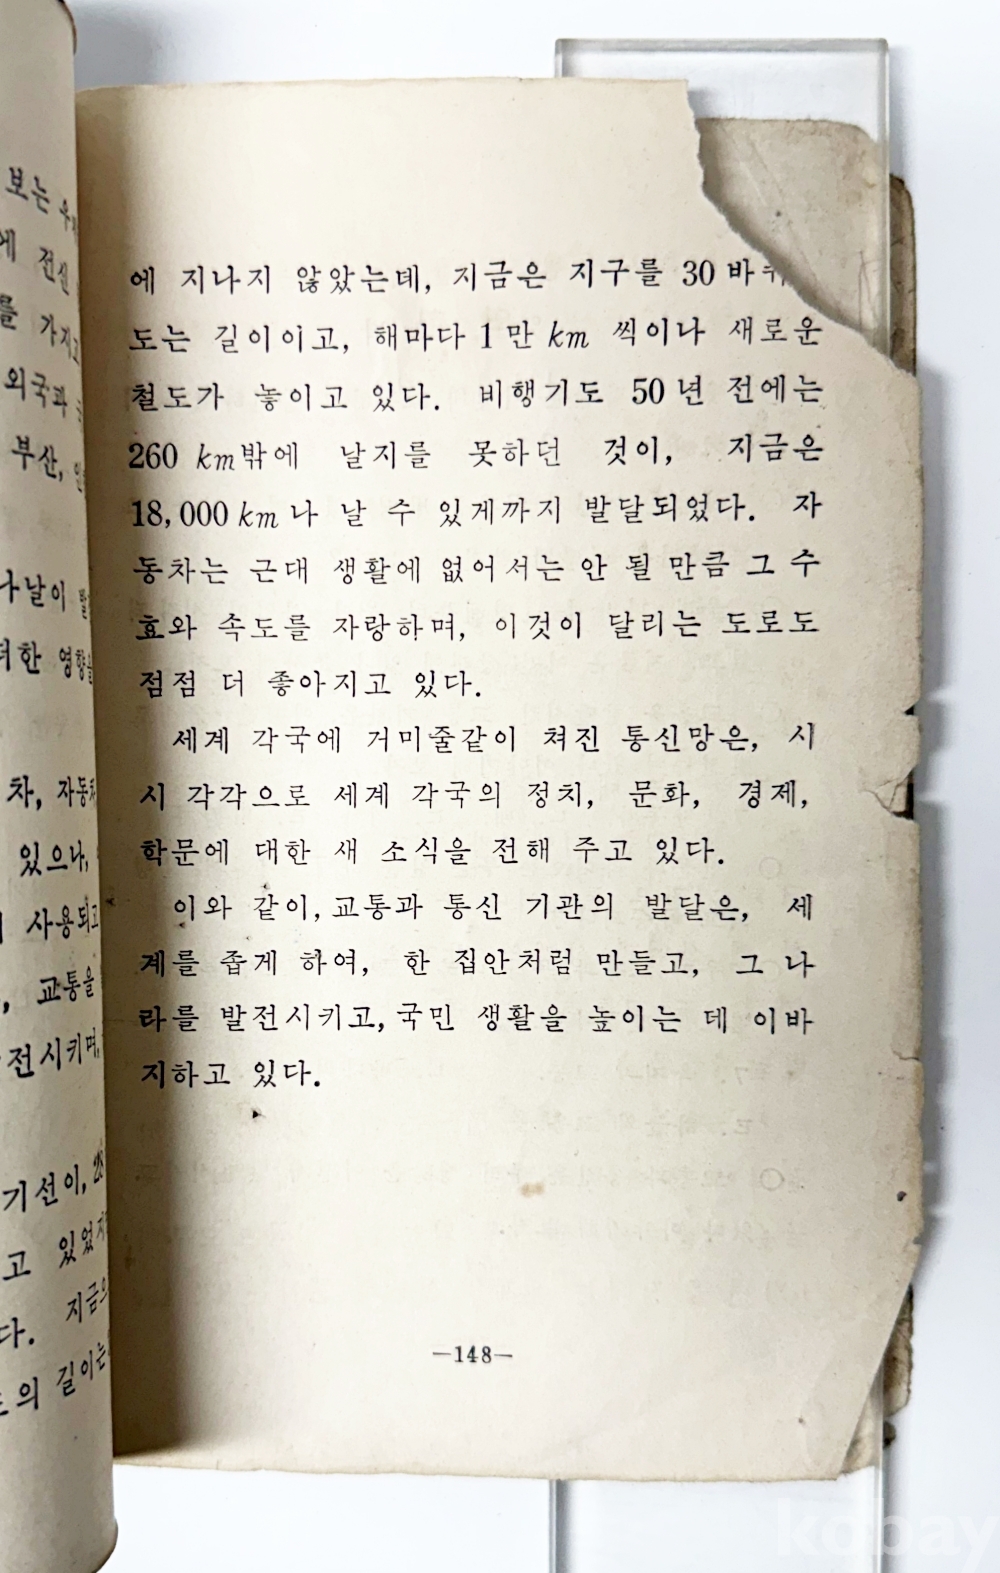 보는
에 전신
를 가지고
외국과
부산,
나날이
더한 영향을
차, 자동차
있으나,
사용되고
, 교통을
전시키며,
기선이,
고 있었
다. 지금
의 길이는
에 지나지 않았는데, 지금은 지구를 30 바퀴
도는 길이이고, 해마다 1 만 km 씩이나 새로운
철도가 놓이고 있다. 비행기도 50 년 전에는
260 km밖에 날지를 못하던 것이, 지금은
18,000 km 나 날 수 있게까지 발달되었다. 자
동차는 근대 생활에 없어서는 안 될 만큼 그 수
효와 속도를 자랑하며, 이것이 달리는 도로도
점점 더 좋아지고 있다.
세계 각국에 거미줄같이 쳐진 통신망은, 시
시 각각으로 세계 각국의 정치, 문화, 경제,
학문에 대한 새 소식을 전해 주고 있다.
이와 같이, 교통과 통신 기관의 발달은, 세
계를 좁게 하여, 한 집안처럼 만들고, 그 나
라를 발전시키고, 국민 생활을 높이는 데 이바
지하고 있다.
—148—
kobay